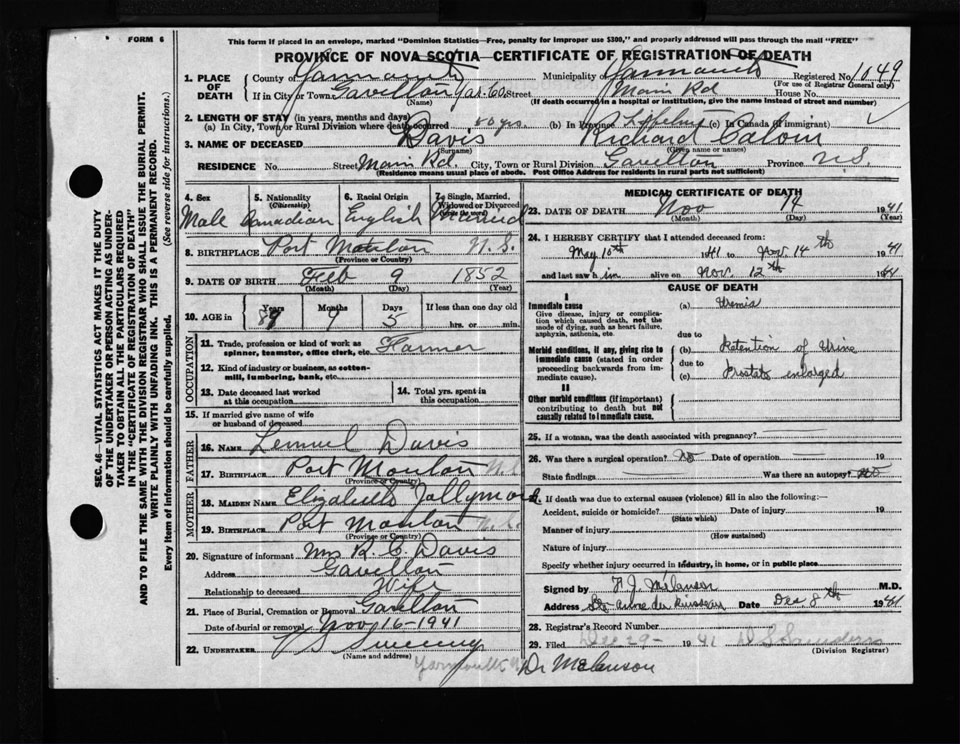 FORM 6
This form if placed in an envelope, marked "Dominion Statistics—Free, penalty for improper use $300," and properly addressed will pass through the mail "FREE"
PROVINCE OF NOVA SCOTIA—CERTIFICATE OF REGISTRATION OF DEATH
1. PLACE OF DEATH
County of Yarmouth Municipality Yarmouth Registered No. 1049
(For use of Registrar General only)
If in City or Town Gavelton Yar. Co. Street Main Rd House No.
(Name) (If death occurred in a hospital or institution, give the name instead of street and number)
2. LENGTH OF STAY (in years, months and days)
(a) In City, Town or Rural Division where death occurred yrs. (b) In Province (c) In Canada (if immigrant)
3. NAME OF DECEASED Davis Richard
(Surname) (Given name or names)
RESIDENCE No. Street Main Rd. City, Town or Rural Division Gavelton Province N.S.
(Residence means usual place of abode. Post Office Address for residents in rural parts not sufficient)
4. Sex Male
5. Nationality (Citizenship) Canadian
6. Racial Origin English
7. Single, Married, Widowed or Divorced (write the word) Married
8. BIRTHPLACE Port Mouton N.S.
(Province or Country)
9. DATE OF BIRTH Feb 9 1852
(Month) (Day) (Year)
10. AGE in Years 89 Months 9 Days 5 If less than one day old hrs. or min.
OCCUPATION
11. Trade, profession or kind of work as spinner, teamster, office clerk, etc. Farmer
12. Kind of industry or business, as cotton-mill, lumbering, bank, etc.
13. Date deceased last worked at this occupation
14. Total yrs. spent in this occupation
15. If married give name of wife or husband of deceased
FATHER
16. NAME Lemuel Davis
17. BIRTHPLACE Port Mouton N.S.
(Province or Country)
MOTHER
18. MAIDEN NAME Elizabeth
19. BIRTHPLACE Port Mouton N.S.
(Province or Country)
20. Signature of informant Mrs R. C. Davis
Address Gavelton
Relationship to deceased Wife
21. Place of Burial, Cremation or Removal Gavelton
Date of burial or removal Nov 16-1941
22. UNDERTAKER Sweeny
(Name and address)
Yarmouth
MEDICAL CERTIFICATE OF DEATH
23. DATE OF DEATH Nov 14 1941
(Month) (Day) (Year)
24. I HEREBY CERTIFY that I attended deceased from:
May 10th 1941 to Nov. 14th 1941
and last saw him alive on Nov. 12th 1941
CAUSE OF DEATH
I
Immediate cause
Give disease, injury or complication which caused death, not the mode of dying, such as heart failure, asphyxia, asthenia, etc.
(a) Uremia
due to
Morbid conditions, if any, giving rise to immediate cause (stated in order proceeding backwards from immediate cause).
(b) Retention of Urine
due to
(c) Prostate enlarged
II
Other morbid conditions (if important) contributing to death but not causally related to immediate cause.
25. If a woman, was the death associated with pregnancy?
26. Was there a surgical operation? No Date of operation 19
State findings Was there an autopsy? No
27. If death was due to external causes (violence) fill in also the following:
Accident, suicide or homicide? Date of injury 19
(State which)
Manner of injury
(How sustained)
Nature of injury
Specify whether injury occurred in industry, in home, or in public place
Signed by Melanson M.D.
Address Ste Anne du Ruisseau Date Dec 8th 1941
28. Registrar's Record Number
29. Filed Dec 29- 1941 Saunders
(Division Registrar)
Dr Melanson
SEC. 46—VITAL STATISTICS ACT MAKES IT THE DUTY
OF THE UNDERTAKER OR PERSON ACTING AS UNDERTAKER TO OBTAIN ALL THE PARTICULARS REQUIRED
IN THE "CERTIFICATE OF REGISTRATION OF DEATH"
AND TO FILE THE SAME WITH THE DIVISION REGISTRAR WHO SHALL ISSUE THE BURIAL PERMIT.
WRITE PLAINLY WITH UNFADING INK. THIS IS A PERMANENT RECORD.
Every item of information should be carefully supplied. (See reverse side for instructions.)